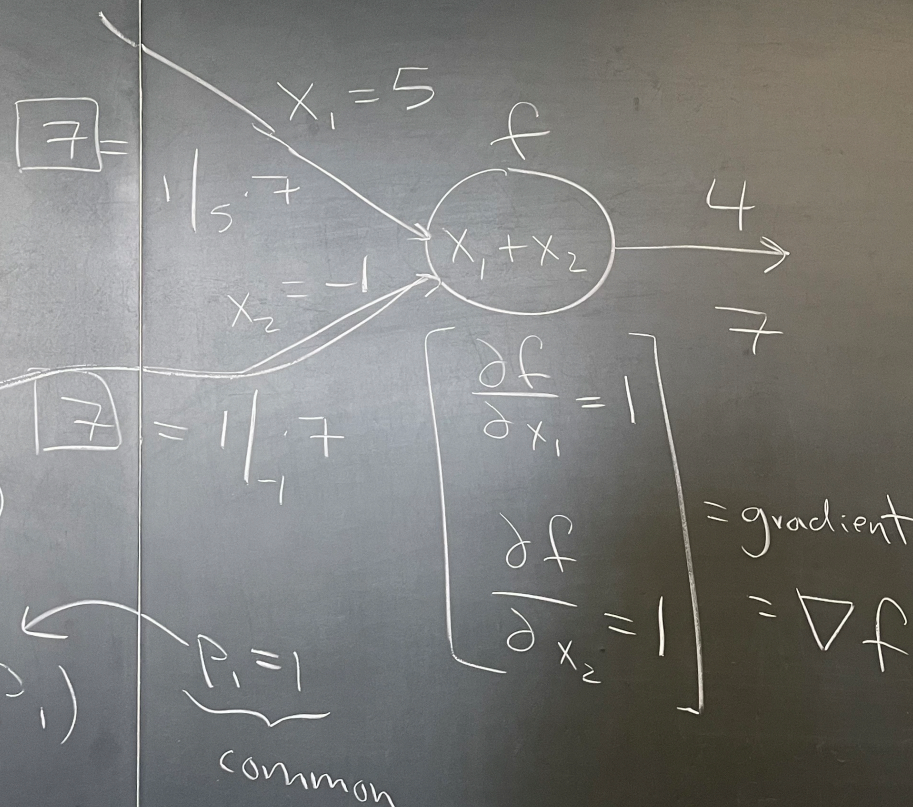 x₁ = 5
f
7 =
1|₅ · 7
x₁ + x₂
4
x₂ = -1
7
7 = 1|₋₁ · 7
∂f/∂x₁ = 1
∂f/∂x₂ = 1
= gradient
= ∇f
P₁ = 1
₁)
common